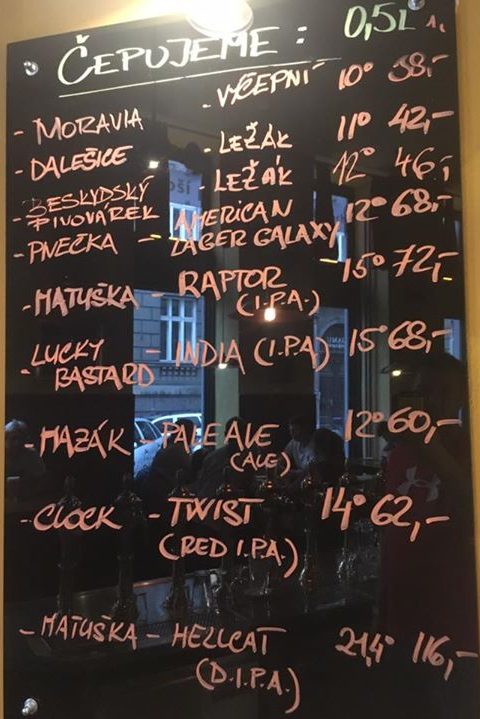 ČEPUJEME: 0,5L
- MORAVIA - VÝČEPNÍ 10° 38,-
- DALEŠICE - LEŽÁK 11° 42,-
- BESKYDSKÝ PIVOVÁREK - LEŽÁK 12° 46,-
- PIVEČKA - AMERICAN LAGER GALAXY 12° 68,-
- MATUŠKA - RAPTOR 15° 72,-
(I.P.A.)
- LUCKY BASTARD - INDIA (I.P.A) 15° 68,-
- MAZÁK - PALE ALE 12° 60,-
(ALE)
- CLOCK - TWIST 14° 62,-
(RED I.P.A.)
- MATUŠKA - HELLCAT 21,4° 116,-
(D.I.P.A.)